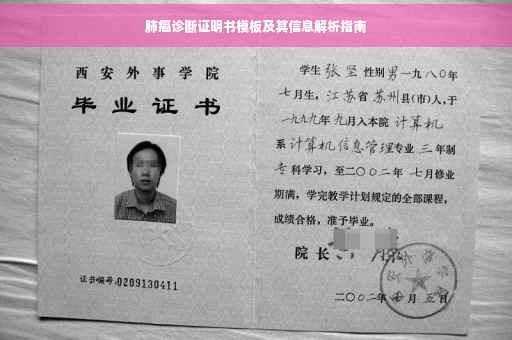 肺癌诊断证明书模板及其信息解析指南
西安外事学院
毕业证书
证书编号:0209130411
学生 张坚 性别 男 一九八〇年
七月生, 江苏省 苏州县(市)人,于
一九九九年 九月入本院 计算机
系 计算机信息管理专业 三 年制
专科学习,至二〇〇二年 七月修业
期满,学完教学计划规定的全部课程,
成绩合格,准予毕业。
院长
二〇〇二年 月五日